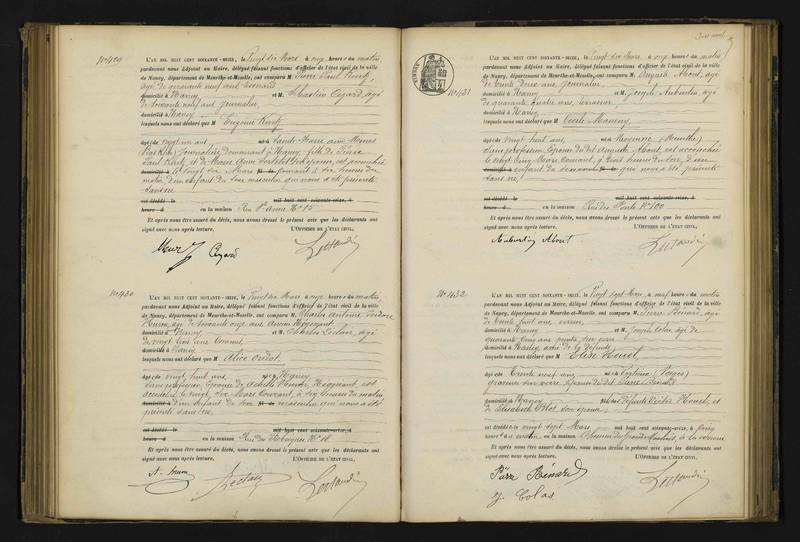 No 429
L'AN MIL HUIT CENT SOIXANTE-SEIZE, le Vingt six Mars à onze heures du matin,
pardevant nous Adjoint au Maire, délégué faisant fonctions d'officier de l'état civil de la ville
de Nancy, département de Meurthe-et-Moselle, ont comparu M. Pierre Paul Kurtz
âgé de quarante neuf ans
domicilié à Nancy et M. Sébastien Cézard, âgé
de soixante neuf ans journalier,
domicilié à Nancy
lesquels nous ont déclaré que M Eugénie Kurtz
âgé de vingt un ans, né à Sainte-Marie aux Mines
(Bas Rhin) Journalière demeurant à Nancy fille de Pierre
Paul Kurtz et de Marie Anne son épouse, est accouchée
domicilié à le vingt six Mars fils de courant à six heures du
matin d'un enfant du sexe masculin qui nous a été présenté
sans vie
est décédé le mil huit cent soixante-seize, à
heure à en la maison Rue Ste Anne No 15
Et après nous être assuré du décès, nous avons dressé le présent acte que les déclarants ont
signé avec nous après lecture. L'OFFICIER DE L'ÉTAT CIVIL,
Cézard
No 430
L'AN MIL HUIT CENT SOIXANTE-SEIZE, le Vingt six Mars à onze heures du matin,
pardevant nous Adjoint au Maire, délégué faisant fonctions d'officier de l'état civil de la ville
de Nancy, département de Meurthe-et-Moselle, ont comparu M. Charles Antoine Isidore
âgé de soixante onze ans ancien Négociant
domicilié à Nancy et M. Charles Leclaire, âgé
de vingt trois ans Commis
domicilié à Nancy
lesquels nous ont déclaré que M Alice
âgé de vingt huit ans, né à Nancy
sans profession, Epouse de Négociant, est
accouchée le vingt six Mars Courant, à six heures du matin
domicilié à d'un Enfant du sexe fils de masculin qui nous a été
présenté sans vie
est décédé le mil huit cent soixante-seize, à
heure à en la maison Rue des No 18
Et après nous être assuré du décès, nous avons dressé le présent acte que les déclarants ont
signé avec nous après lecture. L'OFFICIER DE L'ÉTAT CIVIL,
No 431
L'AN MIL HUIT CENT SOIXANTE-SEIZE, le Vingt six Mars à onze heures du matin
pardevant nous Adjoint au Maire, délégué faisant fonctions d'officier de l'état civil de la ville
de Nancy, département de Meurthe-et-Moselle, ont comparu M. Auguste About, âgé
de trente deux ans, journalier,
domicilié à Nancy et M. Joseph Aubertin, âgé
de quarante quatre ans, terrassier
domicilié à Nancy
lesquels nous ont déclaré que M Cécile
âgé de vingt huit ans, né à (Meurthe)
sans profession Epouse du dit Auguste About, est accouchée
le vingt cinq Mars Courant, à huit heures du soir, d'un
domicilié à enfant du sexe fils de qui nous a été présenté
sans vie,
est décédé le mil huit cent soixante-seize, à
heure à en la maison Rue des Ponts No 100
Et après nous être assuré du décès, nous avons dressé le présent acte que les déclarants ont
signé avec nous après lecture. L'OFFICIER DE L'ÉTAT CIVIL,
Aubertin About
No 432
L'AN MIL HUIT CENT SOIXANTE-SEIZE, le Vingt sept Mars à neuf heures du matin
pardevant nous Adjoint au Maire, délégué faisant fonctions d'officier de l'état civil de la ville
de Nancy, département de Meurthe-et-Moselle, ont comparu M. Pierre Bénard, âgé
de trente huit ans, verrier,
domicilié à Nancy et M. Joseph Colas âgé de
quarante cinq ans peintre sur verre
domicilié à Nancy, de la défunte
lesquels nous ont déclaré que M Elise
âgé de Trente neuf ans, né à (Vosges)
graveur sur verre Epouse du dit Pierre Bénard
domicilié à Nancy fils de défunts Victor et
de Elisabeth son épouse
est décédé le vingt sept Mars mil huit cent soixante-seize, à
heure du matin en la maison
Et après nous être assuré du décès, nous avons dressé le présent acte que les déclarants ont
signé avec nous après lecture. L'OFFICIER DE L'ÉTAT CIVIL,
Pierre Bénard
J. Colas